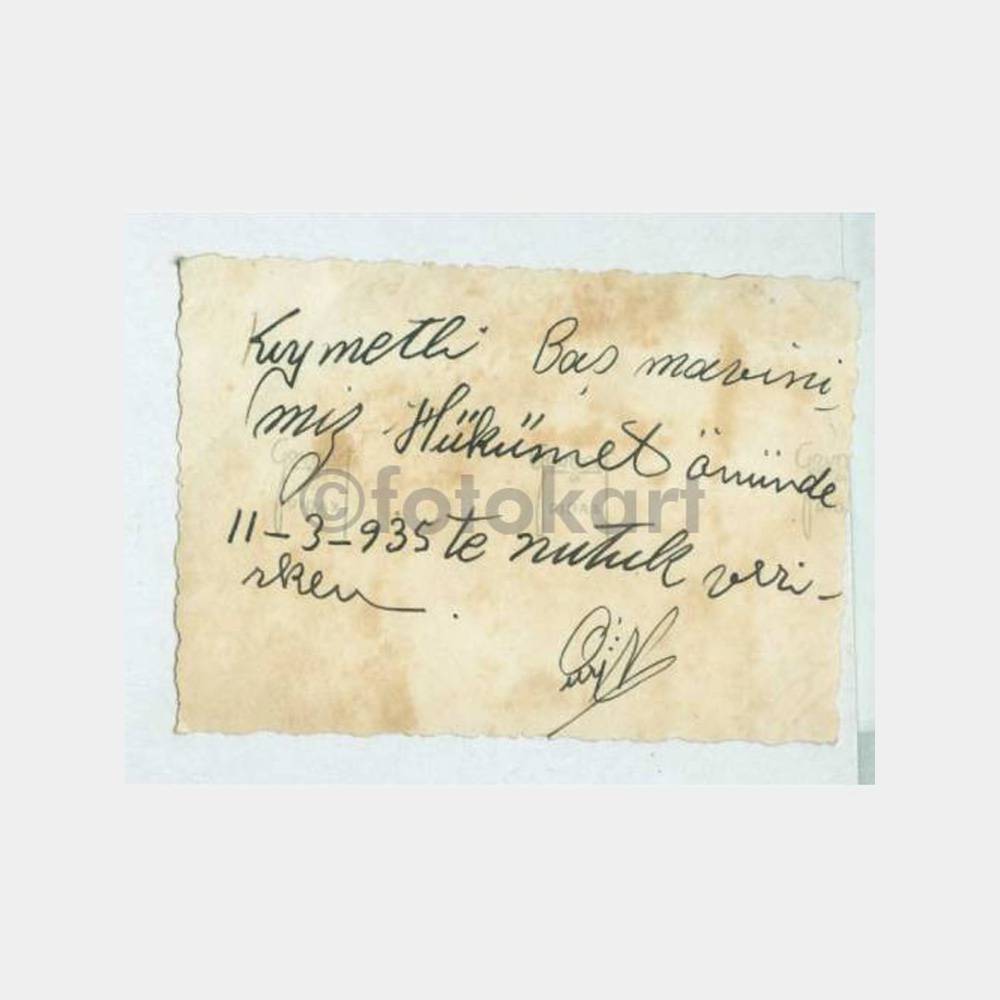 Kıymetli Baş mavini-
miz Hükümet önünde
©fotokart
11-3-935 te nutuk veri-
rken .